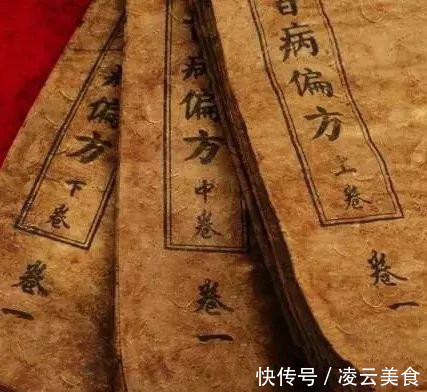 病偏方
上卷
卷一
病偏方
中卷
卷一
病偏方
下卷
卷一
快传号/凌云美食